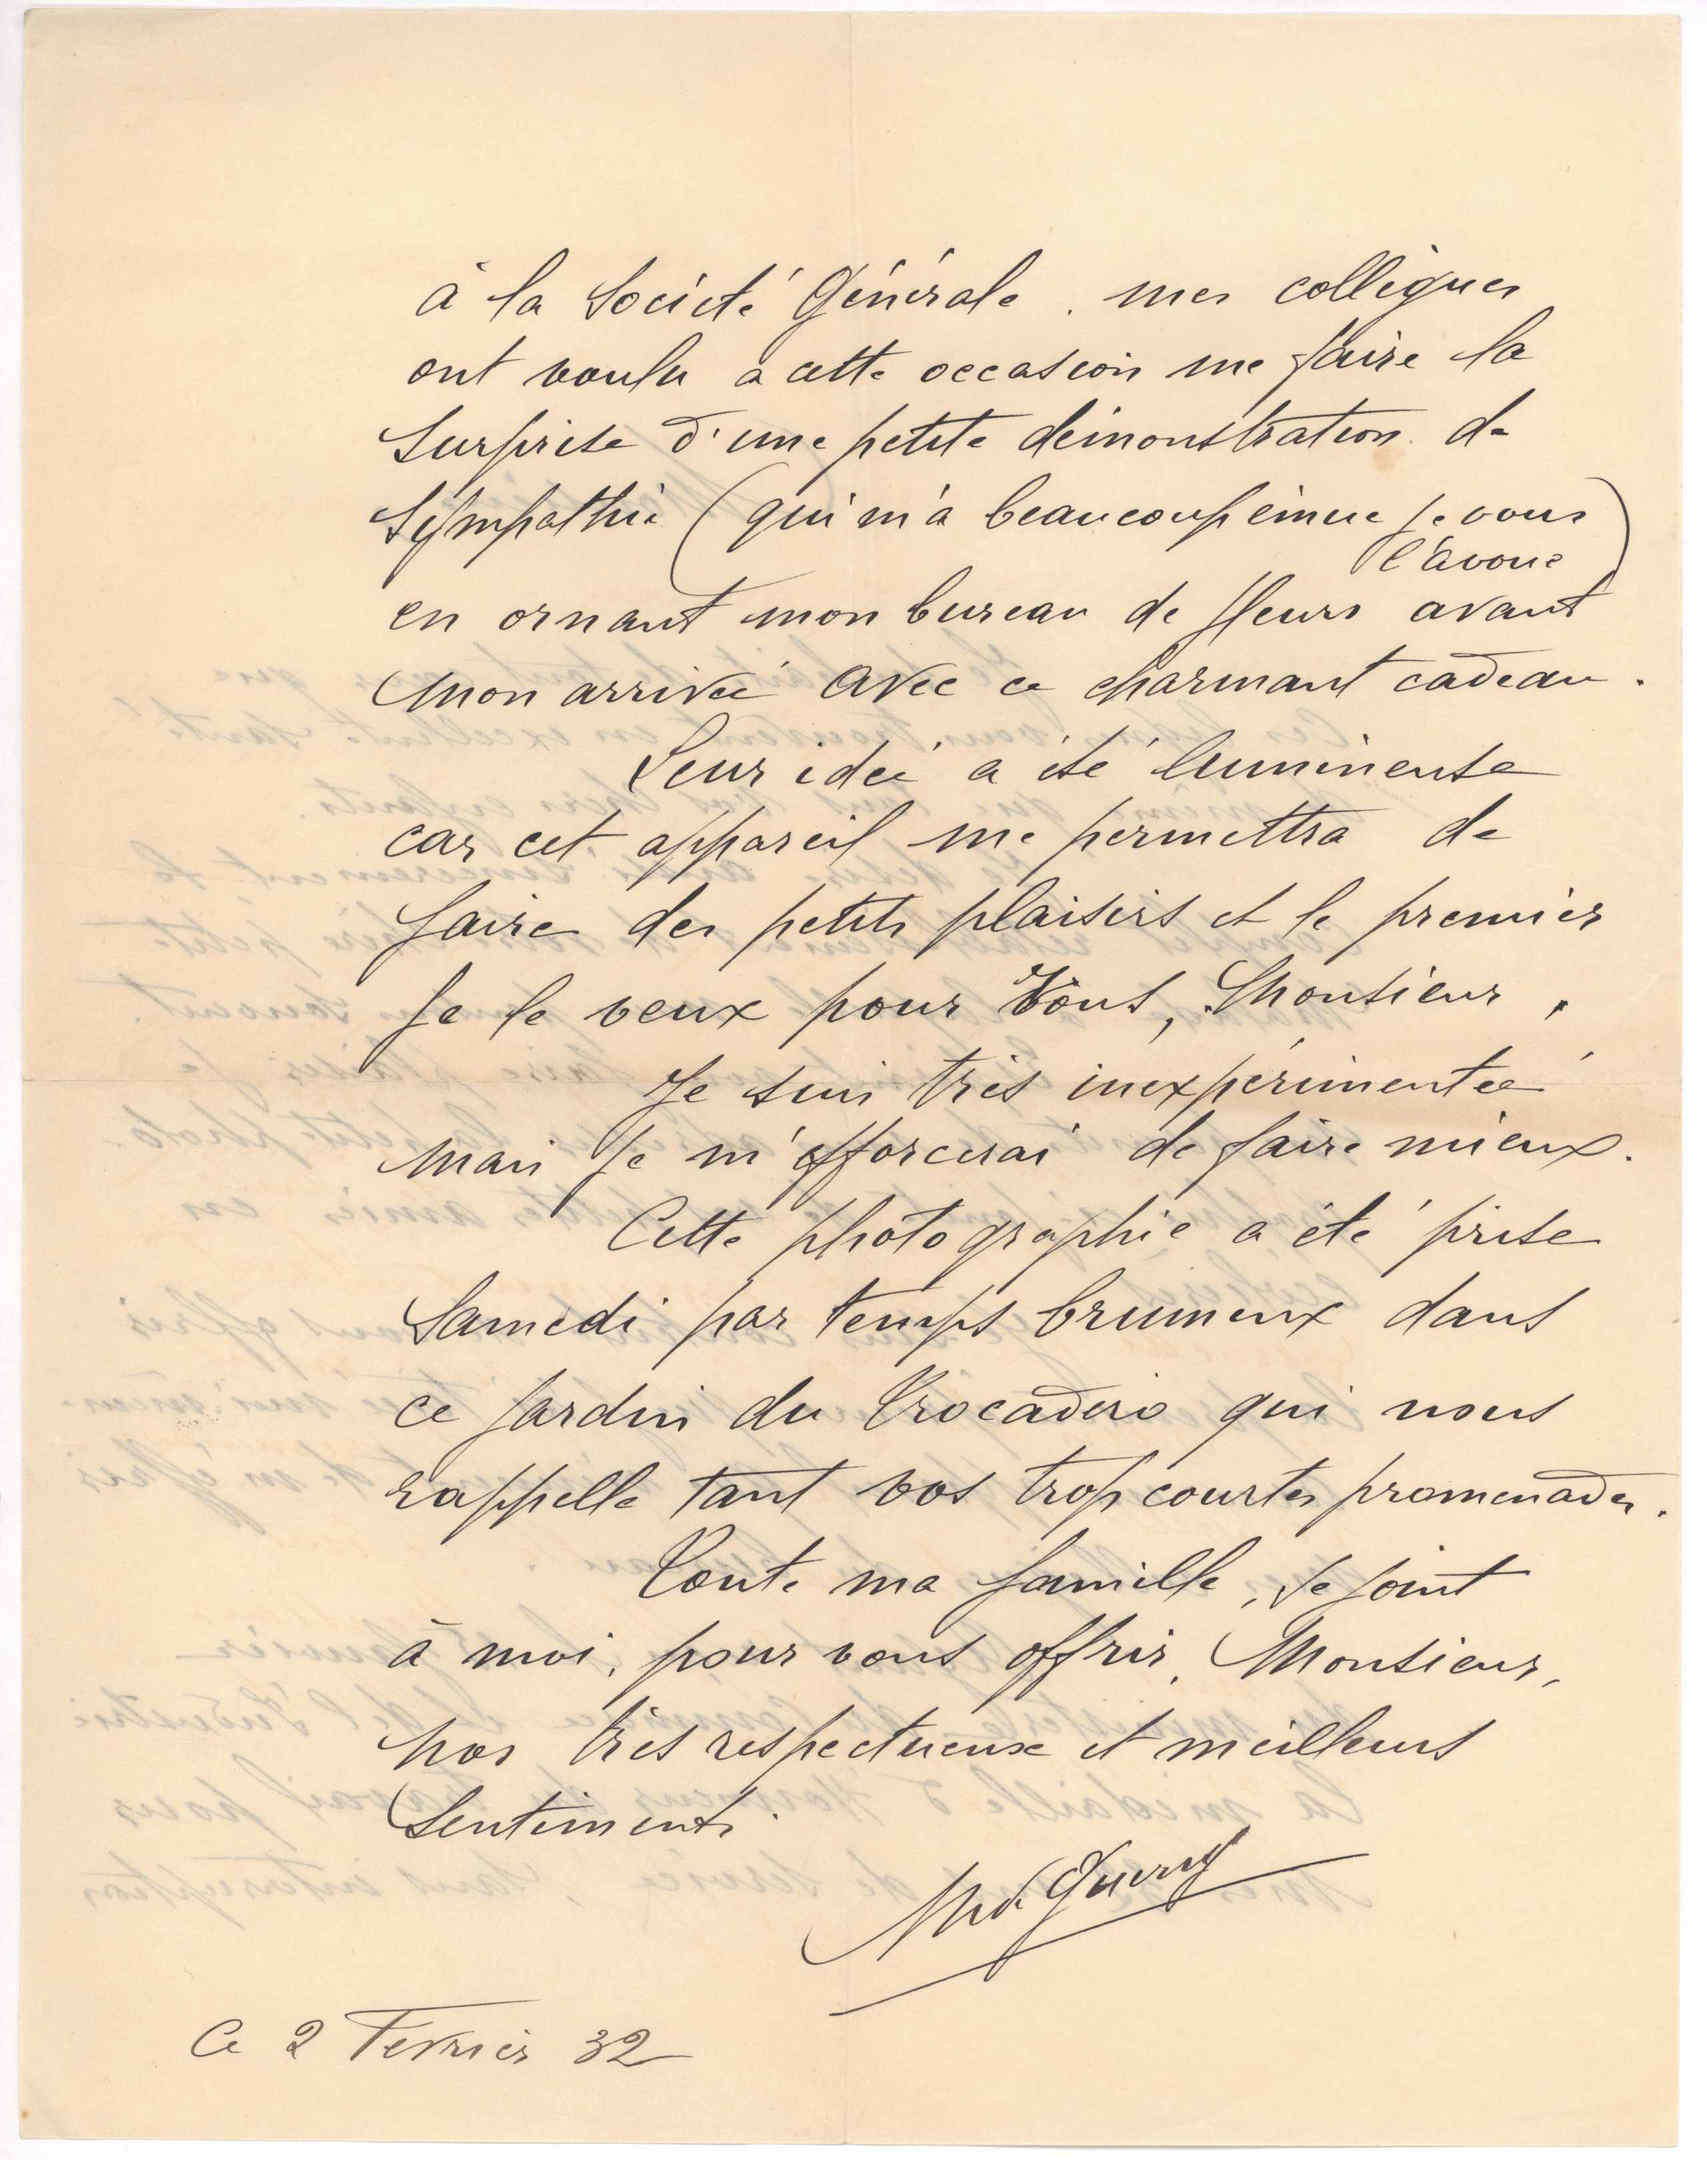 à la Société Générale. mes collègues
ont voulu à cette occasion me faire la
surprise d'une petite démonstration de
sympathie (qui m'a beaucoup émue je vous
l'avoue)
en ornant mon bureau de fleurs avant
mon arrivée avec ce charmant cadeau.
Leur idée a été lumineuse
car cet appareil me permettra de
faire des petits plaisirs et le premier
je le veux pour Vous, Monsieur.
Je suis très inexpérimentée
mais je m'efforcerai de faire mieux.
Cette photographie a été prise
Samedi par temps brumeux dans
ce jardin du Trocadéro qui nous
rappelle tant vos trop courtes promenades.
Toute ma famille, se joint
à moi, pour vous offrir, Monsieur,
nos très respectueux et meilleurs
sentiments.
Ce 2 Fevrier 32